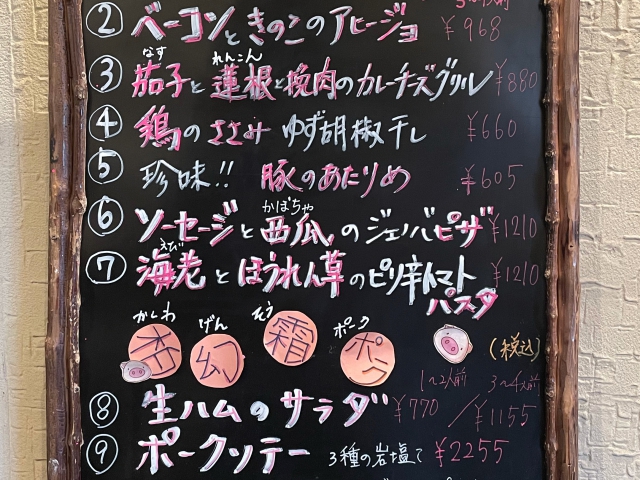 ② ベーコンときのこのアヒージョ ¥968
なす れんこん
③ 茄子と蓮根と挽肉のカレーチーズグリル ¥880
④ 鶏のささみ ゆず胡椒干し ¥660
⑤ 珍味!! 豚のあたりめ ¥605
かぼちゃ
⑥ ソーセージと西瓜のジェノバピザ ¥1210
えび
⑦ 海老とほうれん草のピリ辛トマトパスタ ¥1210
かしわ げん そう ポーク
杏 幻 霜 ポーク
(税込)
1〜2人前 3〜4人前
⑧ 生ハムのサラダ ¥770 / ¥1155
⑨ ポークソテー 3種の岩塩で ¥2255